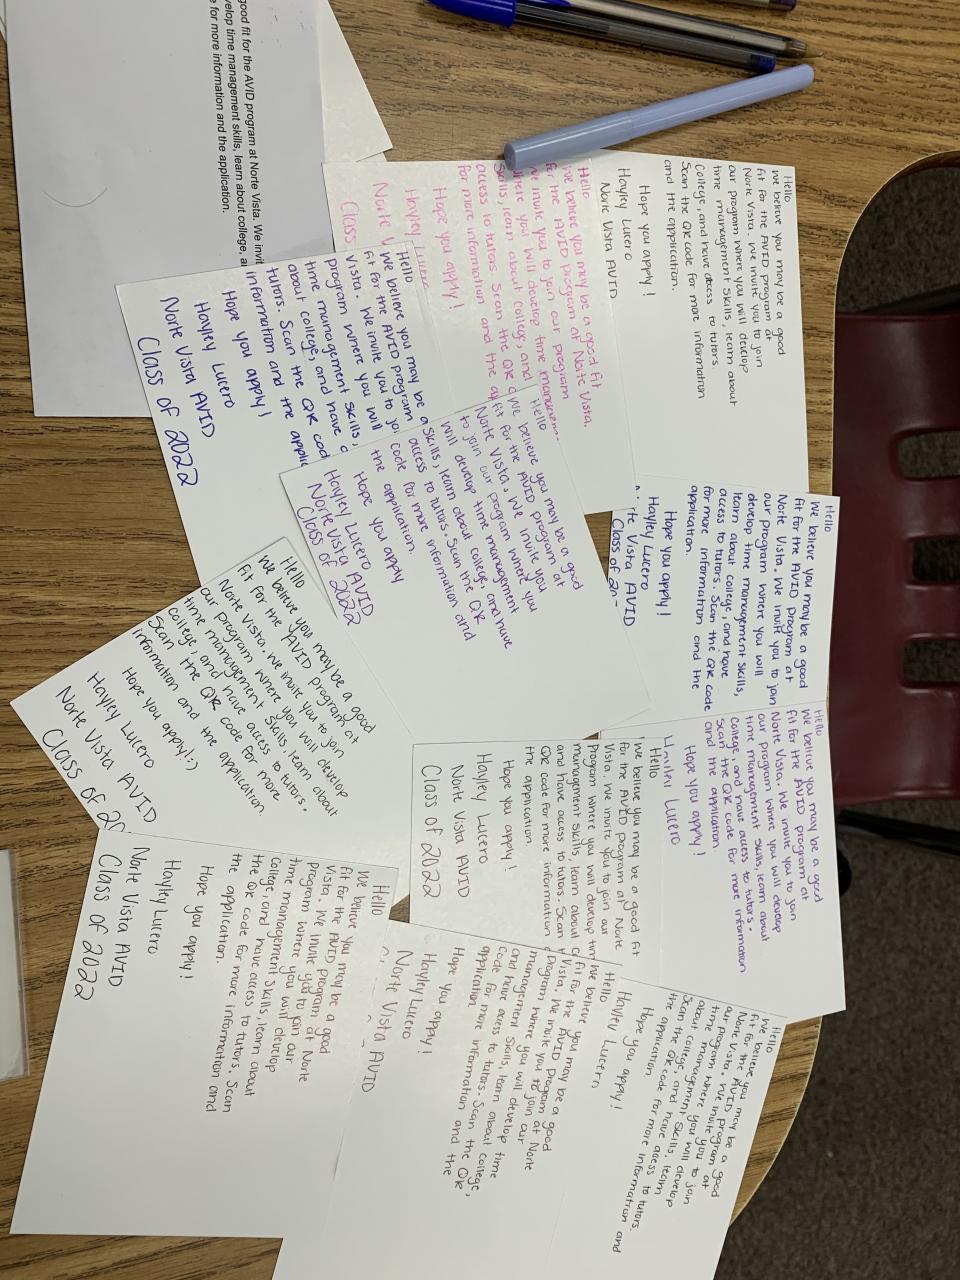 good fit for the AVID program at Norte Vista. We invit
velop time management skills, learn about college, a
e for more information and the application.
Hello
We believe you may be a good
fit for the AVID program at
Norte Vista. We invite you to join
our program where you will develop
time management skills, learn about
College, and have access to tutors
Scan the QR code for more information
and the application.
Hope you apply!
Hayley Lucero
Norte Vista AVID
Hello
We believe you may be a good fit
for the AVID program at Norte Vista.
We invite you to join our program
where you will develop time
skills, learn about College, and
access to tutors. Scan the QR
for more information and the
Hope you apply!
Hayley Lucero
Norte
Class
Hello
We believe you may be a
fit for the AVID program
Vista. We invite you to
program where you will
time management skills,
about college, and have
tutors. Scan the QR
information and the
Hope you apply!
Hayley Lucero
Norte Vista AVID
Class of 2022
skills, learn about college, and have
access to tutors. Scan the QR
code for more information and
the application.
Hello
We believe you may be a good
fit for the AVID program at
Norte Vista. We invite you
to join our program where you
will develop time management
Hope you apply
Hayley Lucero
Norte Vista AVID
Class of 2022
Hello
We believe you may be a good
fit for the AVID program at
Norte Vista. We invite you to join
our program where you will
develop time management skills,
learn about college, and have
access to tutors. Scan the QR code
for more information and the
application.
Hope you apply!
Hayley Lucero
Vista AVID
Class of
Hello
We believe you may be a good
fit for the AVID program at
Norte Vista. We invite you to join
our program where you will develop
time management skills, learn about
college, and have access to tutors.
Scan the QR code for more
information and the application.
Hope you apply!:)
Hayley Lucero
Norte Vista AVID
Class of
Hello
We believe you may be a good
fit for the AVID program at
Norte Vista. We invite you to join
our program where you will develop
time management skills, learn about
College, and have access to tutors.
Scan the QR code for more information
and the application
Hope you apply!
Lucero
Hello
We believe you may be a good fit
for the AVID program at Norte
Vista. We invite you to join our
Program where you will develop
management skills, learn about
and have access to tutors. Scan
QR code for more information
the application.
Hope you apply!
Hayley Lucero
Norte Vista AVID
Class of 2022
Hello
We believe you may be a good
fit for the AVID program at Norte
Vista. We invite you to join our
Program where you will develop
time management skills, learn about
College, and have access to tutors. Scan
the QR code for more information and
the application.
Hope you apply!
Hayley Lucero
Norte Vista AVID
Class of 2022
Hello
We believe you may be a good
fit for the AVID program at Norte
Vista. We invite you to join our
Program where you will develop time
management skills, learn about college,
and have access to tutors. Scan the QR
code for more information and the
application
Hope you apply!
Hayley Lucero
Norte Vista AVID
Hello
We believe you may be a good
fit for the AVID program at
Norte Vista. We invite you to join
our program where you will develop
time management skills, learn
about college, and have acess to tutors.
Scan the QR code for more information and
the application
Hope you apply!
Hayley Lucero